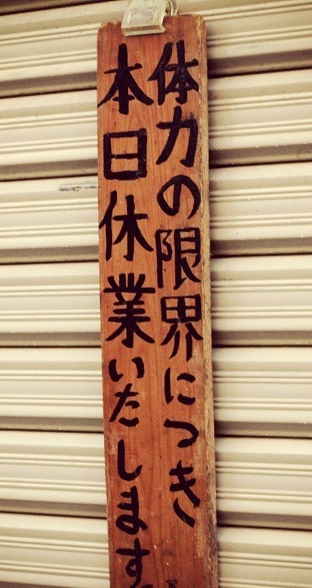 体力の限界につき
本日休業いたします